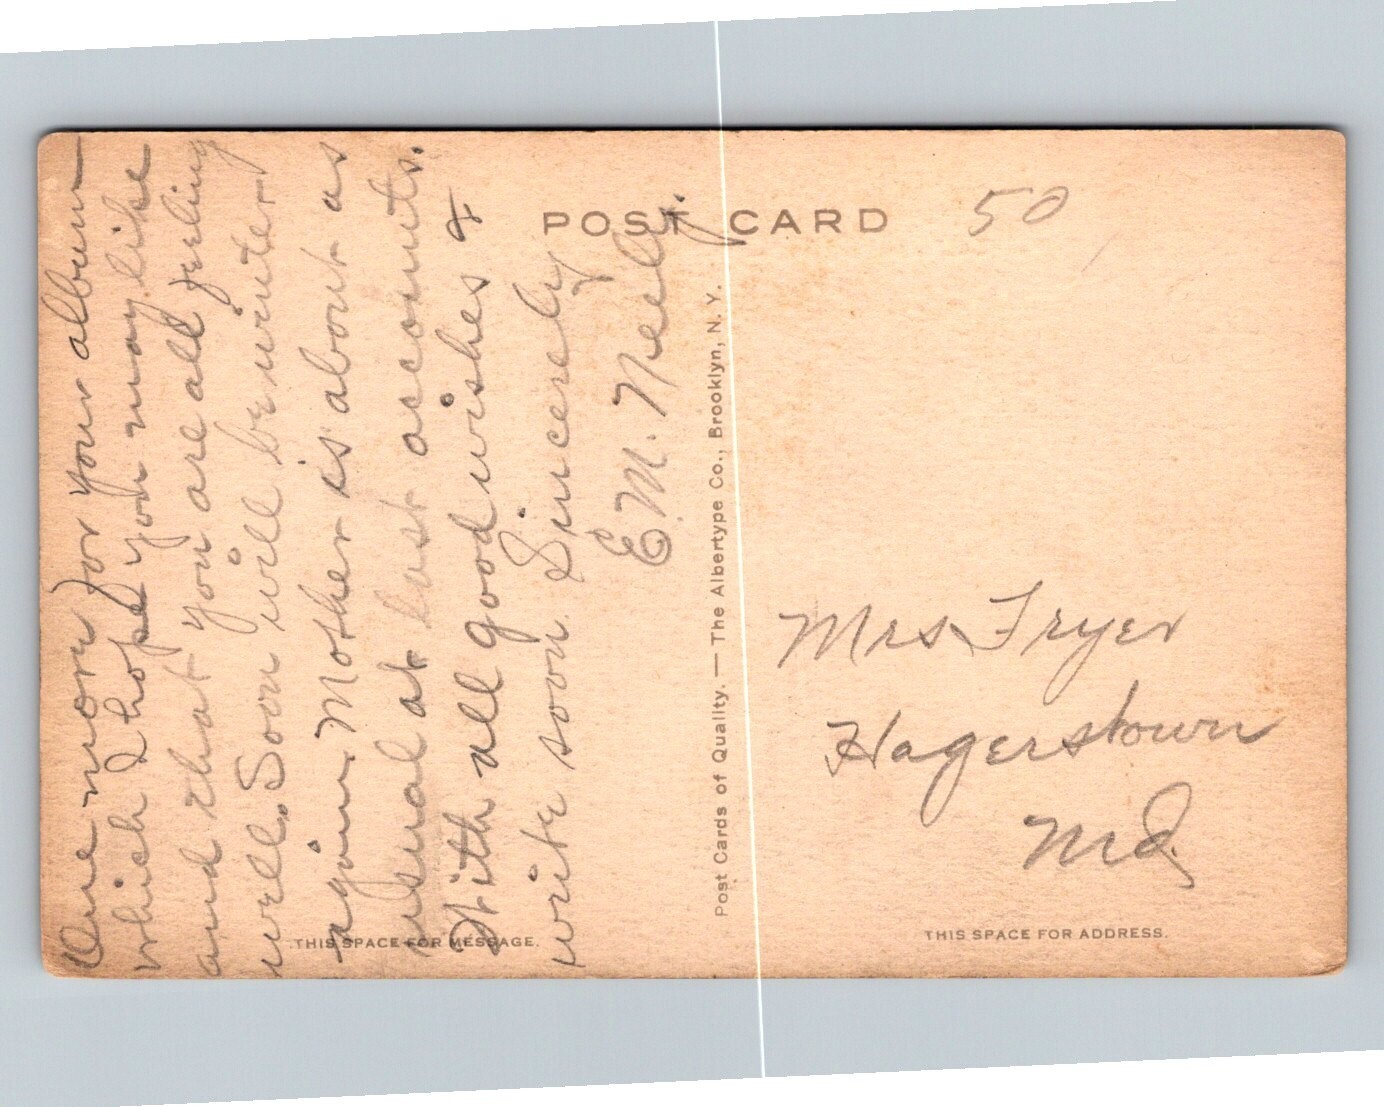 POST CARD
50
One more for your album
which I hope you may like
and that you are all feeling
well. Soon will be winter
again. Mother is about as
usual at last accounts.
With all good wishes &
write soon. Sincerely
E. M. Neely.
Post Cards of Quality. — The Albertype Co., Brooklyn, N. Y.
Mrs Fryer
Hagerstown
Md.
THIS SPACE FOR MESSAGE.
THIS SPACE FOR ADDRESS.